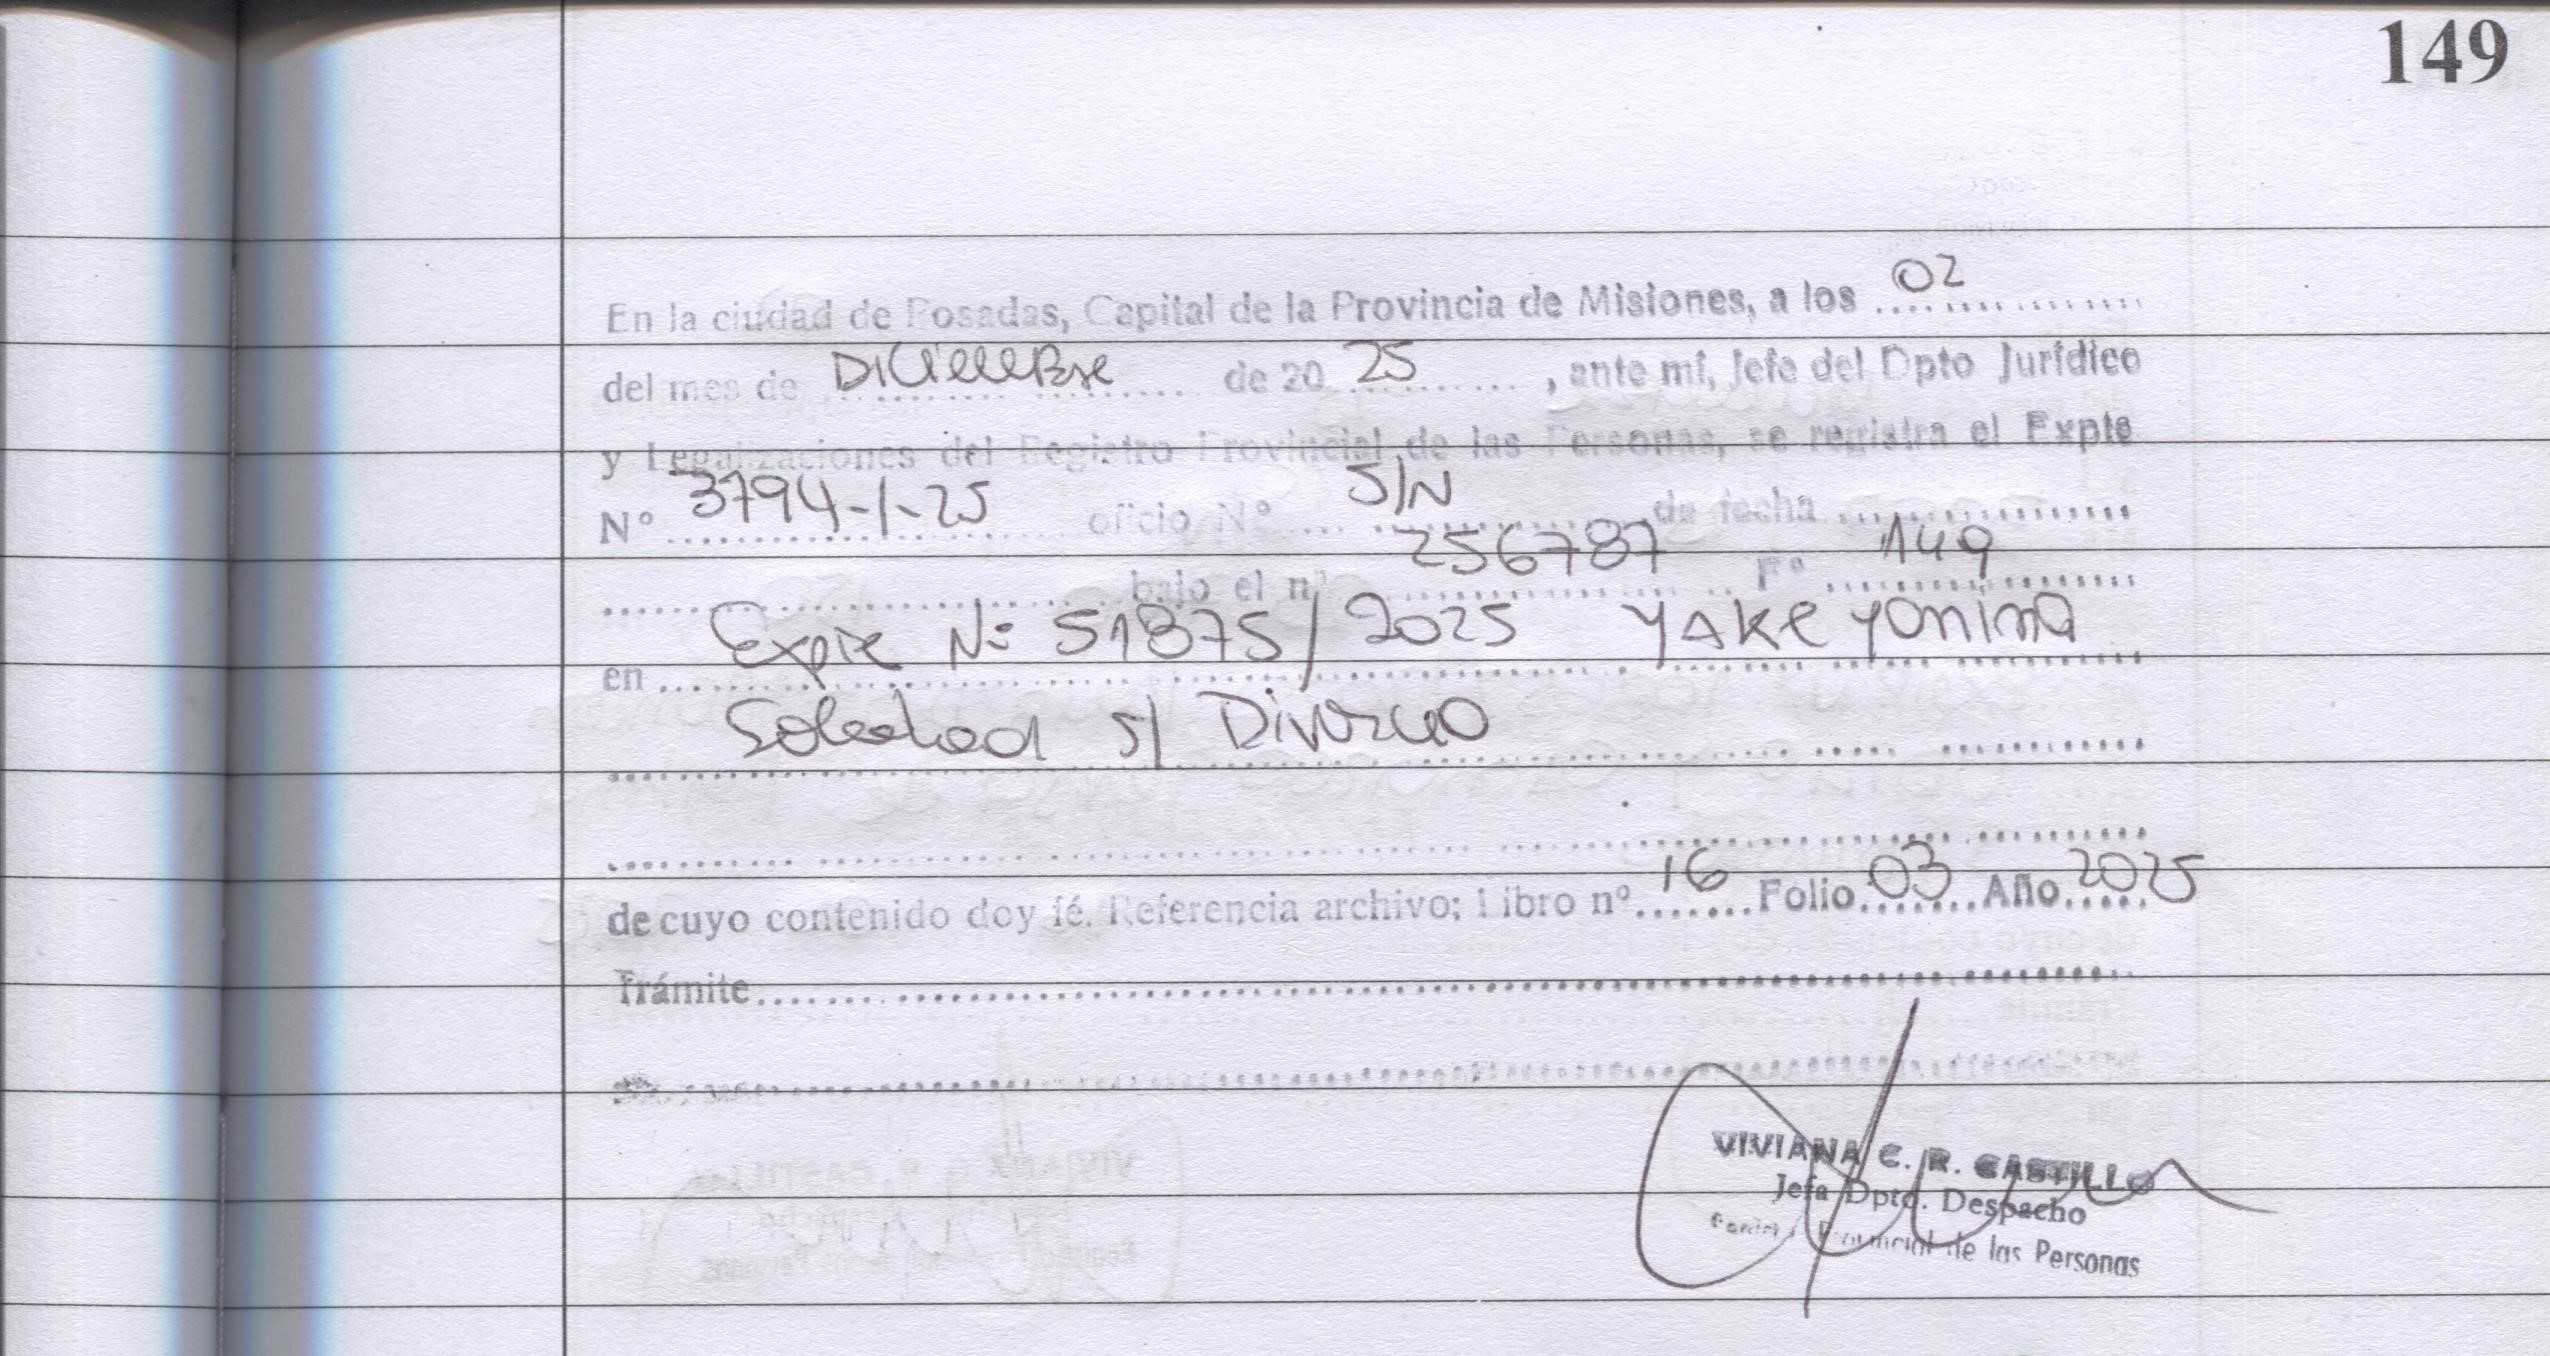 149
En la ciudad de Posadas, Capital de la Provincia de Misiones, a los 02
del mes de Diciembre de 20 25, ante mí, Jefe del Dpto Jurídico
y Legalizaciones del Registro Provincial de las Personas, se registra el Expte
N° 3794-1-25 oficio N° S/N de fecha
bajo el n° 256787 F° 149
en Expte N° 51875/2025 YAKE YANINA
Soledad s/ Divorcio
de cuyo contenido doy fé. Referencia archivo; Libro n° 16 Folio 03 Año 2025
Trámite
VIVIANA C. R. CASTILLO
Jefa Dpto. Despacho
Provincial de las Personas